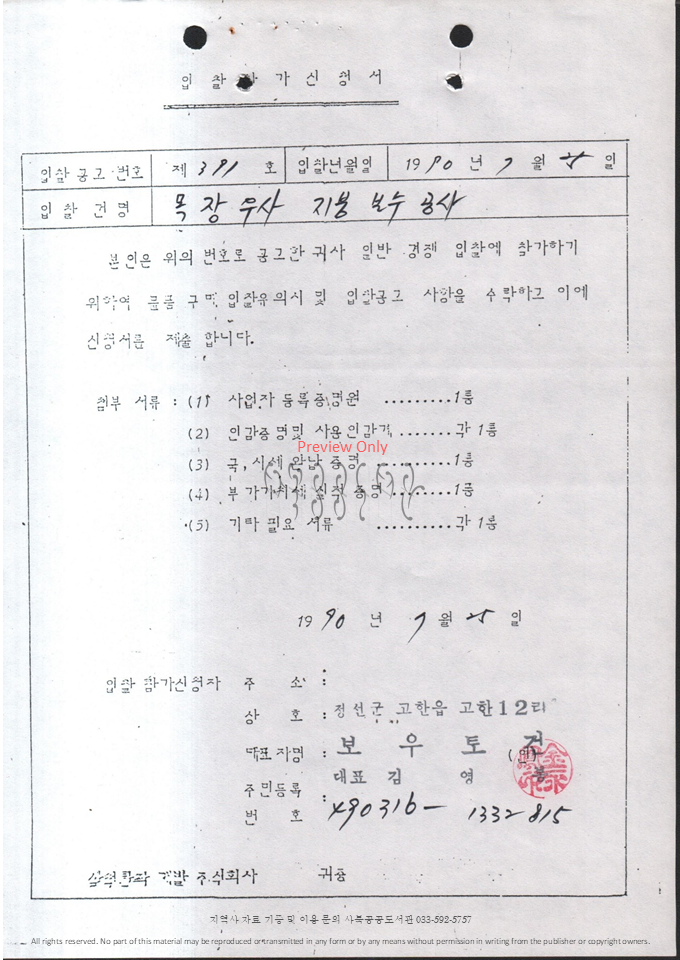 입찰참가신청서
입찰공고번호 제 391 호 입찰년월일 1990 년 7 월 일
입찰건명 목장 우사 지붕 보수 공사
본인은 위의 번호로 공고한 귀사 일반 경쟁 입찰에 참가하기
위하여 물품 구매 입찰유의서 및 입찰공고 사항을 수락하고 이에
신청서를 제출합니다.
첨부 서류 : (1) 사업자 등록증명원 .........1통
(2) 인감증명및 사용인감계 .......각 1통
Preview Only
(3) 국,시세 완납 증명 .........1통
(4) 부가가치세 실적 증명 .........1통
(5) 기타 필요 서류 ..........각 1통
1990 년 7 월 25 일
입찰 참가신청자 주 소 :
상 호 : 정선군 고한읍 고한12리
대표자명 : 보 우 토 건 (인)
대표 김 영
주민등록 :
번 호 490316- 1332815
삼척탄좌 개발 주식회사 귀중
지역사 자료 기증 및 이용 문의 사북공공도서관 033-592-5757
All rights reserved. No part of this material may be reproduced or transmitted in any form or by any means without permission in writing from the publisher or copyright owners.